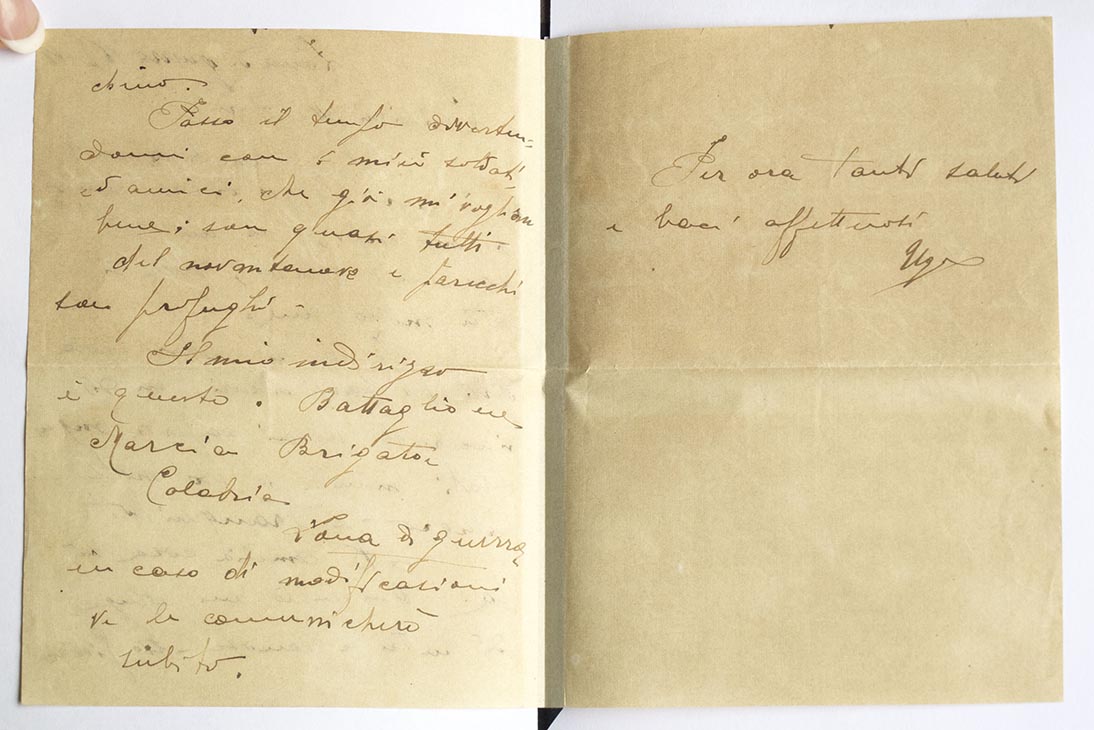 chino.
Passo il tempo diverten-
domi con i miei soldati
ed amici, che già mi voglion
bene; son quasi tutti
del novantanove e parecchi
son profughi -
Il mio indirizzo
è questo. Battaglione
Marcia Brigata
Calabria
Zona di guerra,
in caso di modificazioni
ve le comunicherò
subito.
Per ora tanti saluti
e baci affettuosi
Ugo